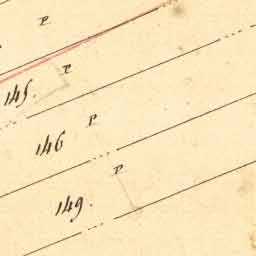 P
P
145.
P
146
P
149.